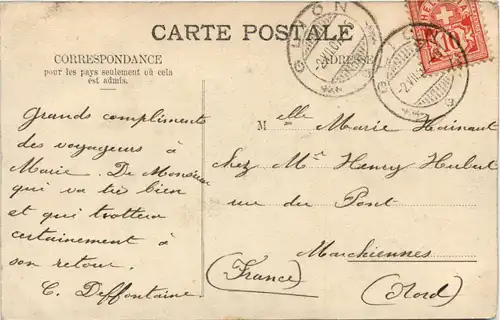 CARTE POSTALE
CORRESPONDANCE
pour les pays seulement où cela
est admis.
ADRESSE
GIMEL
10
Grands compliments
des voyageurs à
Marie. De Monsieur
qui va très bien
et qui trottera
certainement à
son retour.
C. Deffontaine
Melle Marie Hainaut
chez Mr Henry Hubert
rue du Pont
Marchiennes
(France) (Nord)